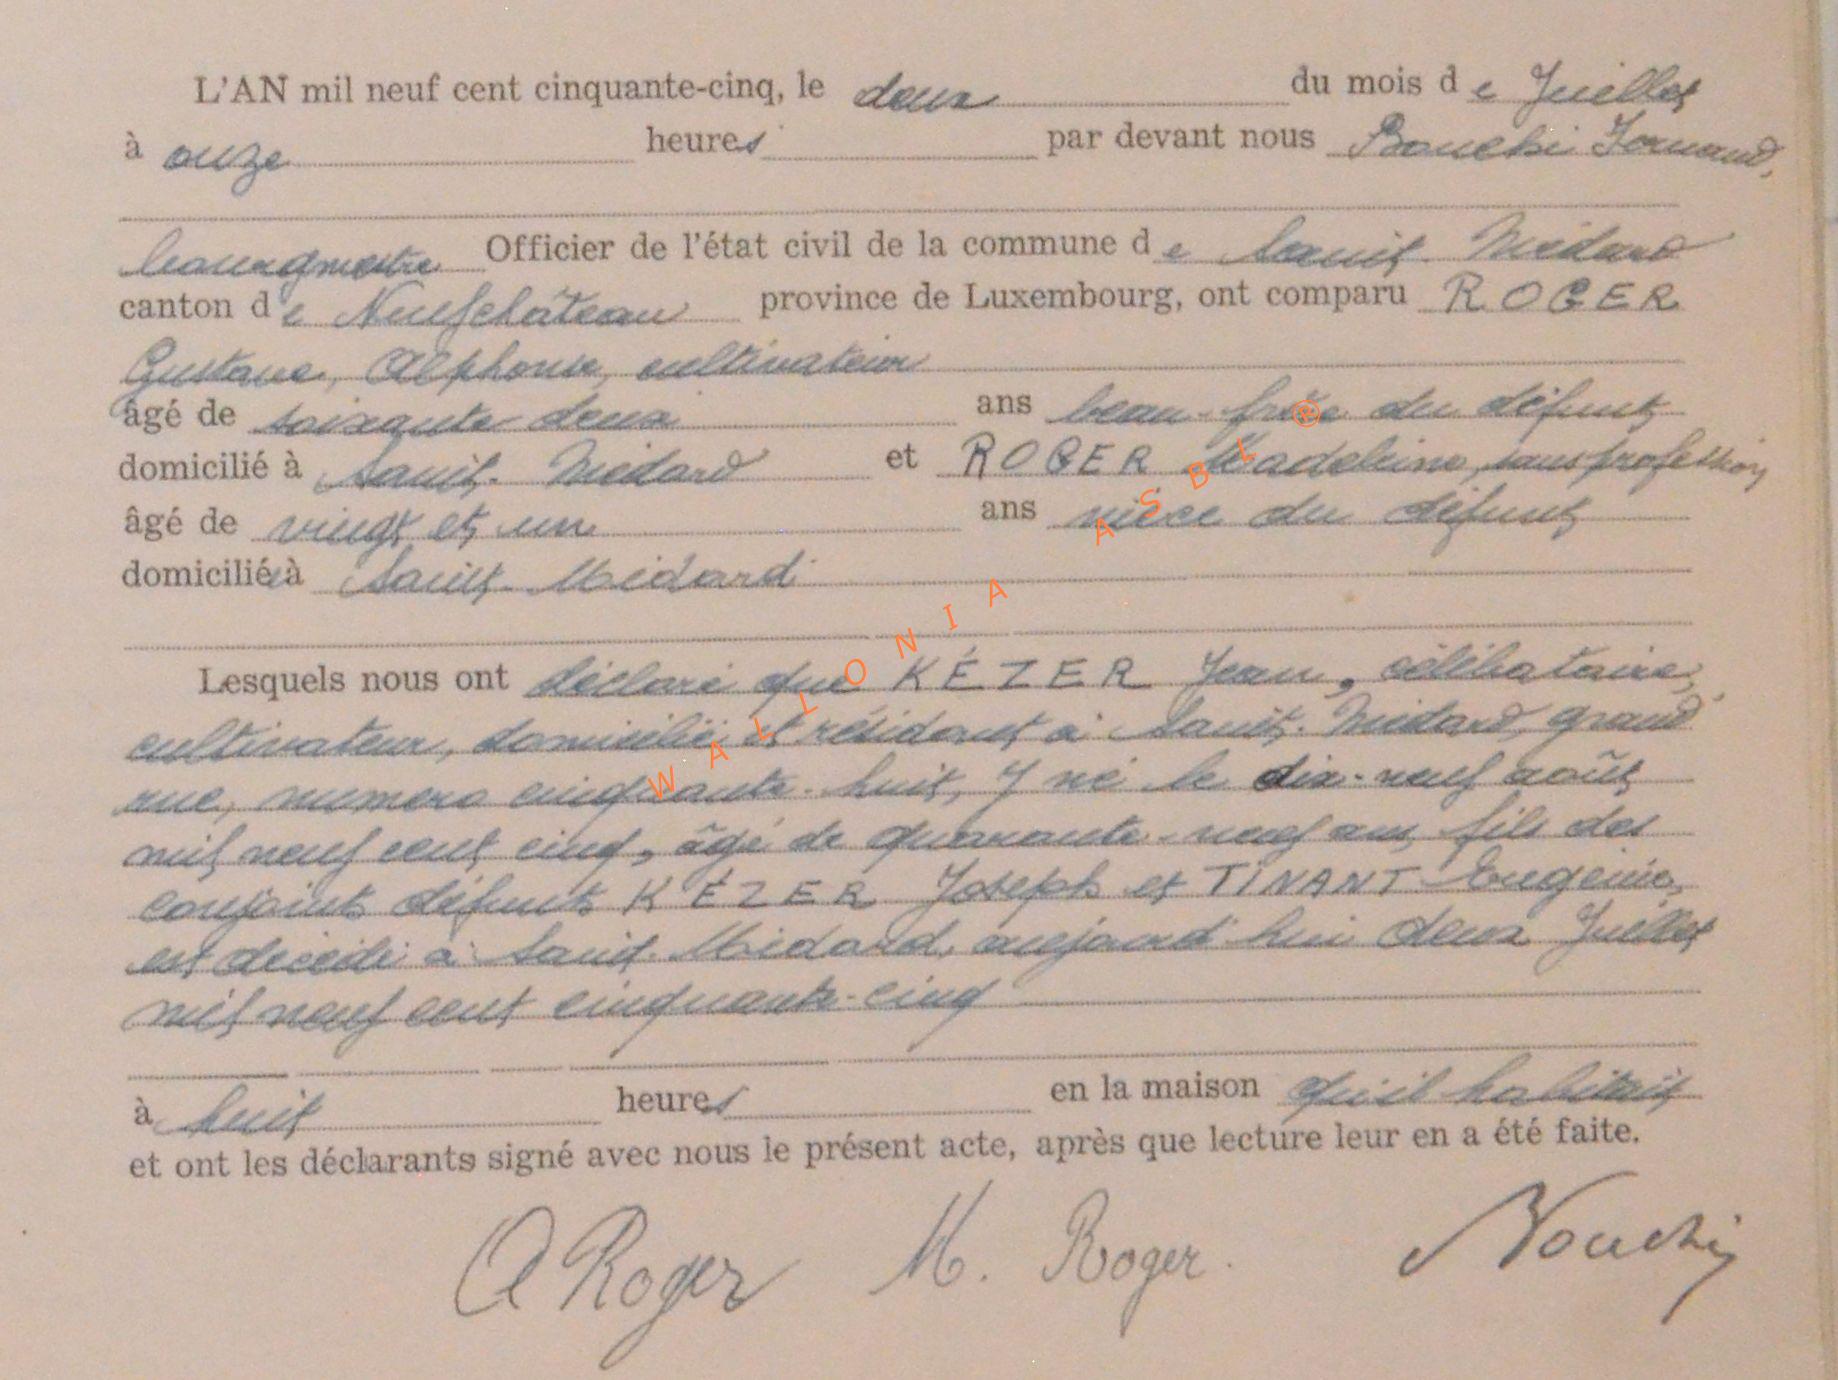 L'AN mil neuf cent cinquante-cinq, le deux du mois de Juillet
à onze heures par devant nous Bouchi Fernand,
bourgmestre Officier de l'état civil de la commune de Saint-Médard
canton de Neufchâteau province de Luxembourg, ont comparu ROGER
Gustave, Alphonse, cultivateur
âgé de soixante deux ans beau-frère du défunt
domicilié à Saint-Médard et ROGER Madeleine, sans profession
âgé de vingt et un ans nièce du défunt
domiciliée à Saint-Médard
Lesquels nous ont déclaré que KÉZER Jean, célibataire,
cultivateur, domicilié et résidant à Saint-Médard, grand
rue, numéro cinquante-huit, y né le dix-neuf août
mil neuf cent cinq, âgé de quarante-neuf ans, fils des
conjoints défunts KÉZER Joseph et TINANT Eugénie,
est décédé à Saint-Médard, aujourd'hui deux Juillet
mil neuf cent cinquante-cinq
à huit heures en la maison qu'il habitait
et ont les déclarants signé avec nous le présent acte, après que lecture leur en a été faite.
A Roger M. Roger.
WALLONIA ASBL ®